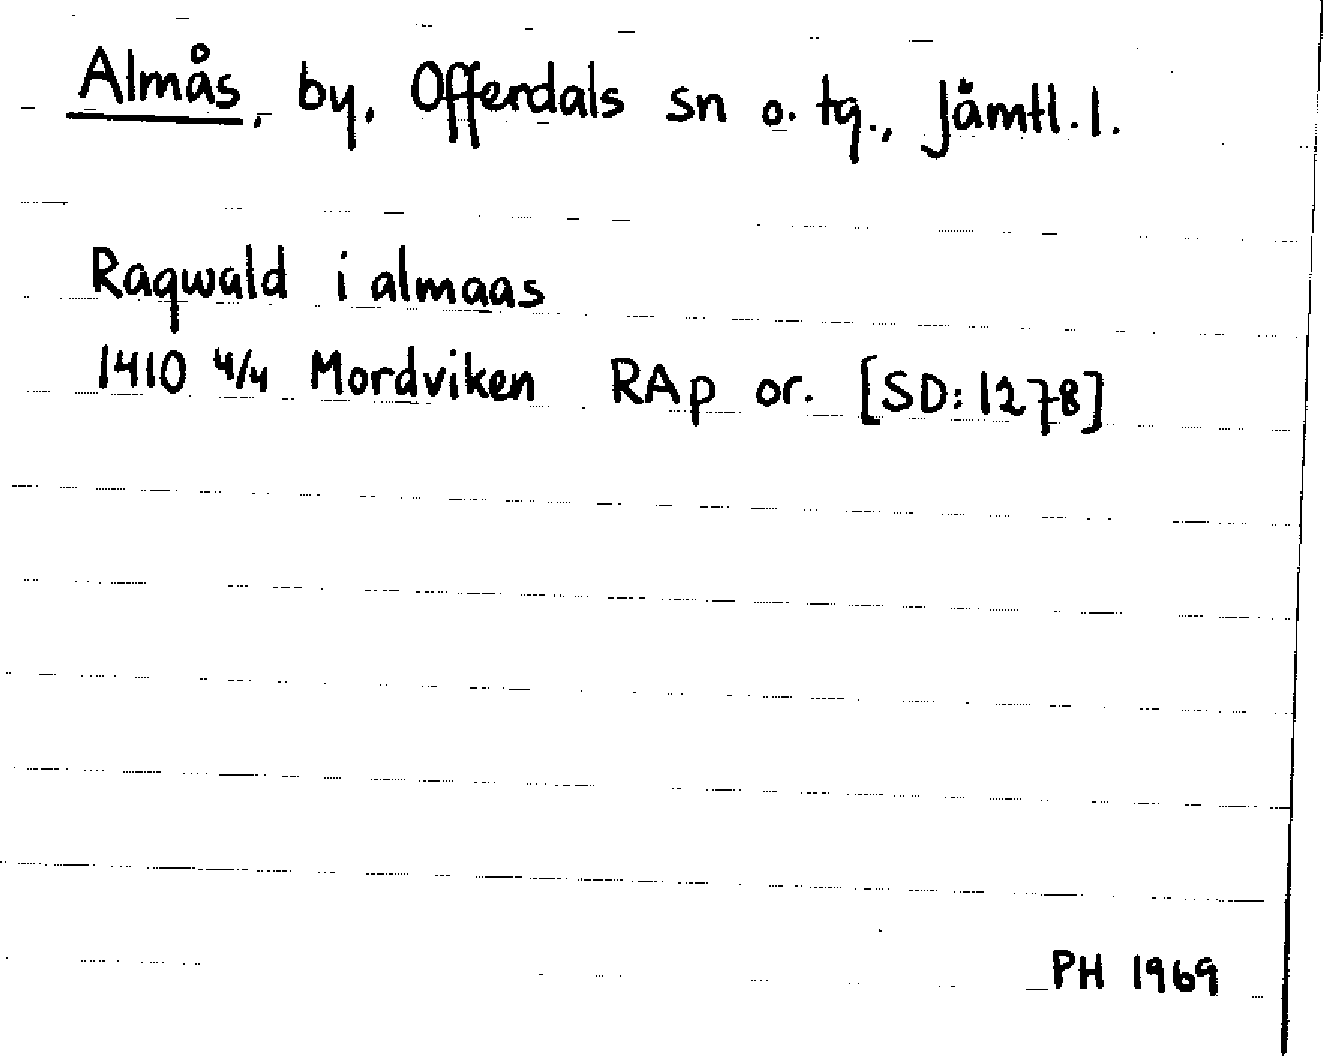 Almås, by, Offerdals sn o. tg., Jämtl. l.
Ragwald i almaas
1410 4/4 Mordviken RAp or. [SD: 1278]
PH 1969